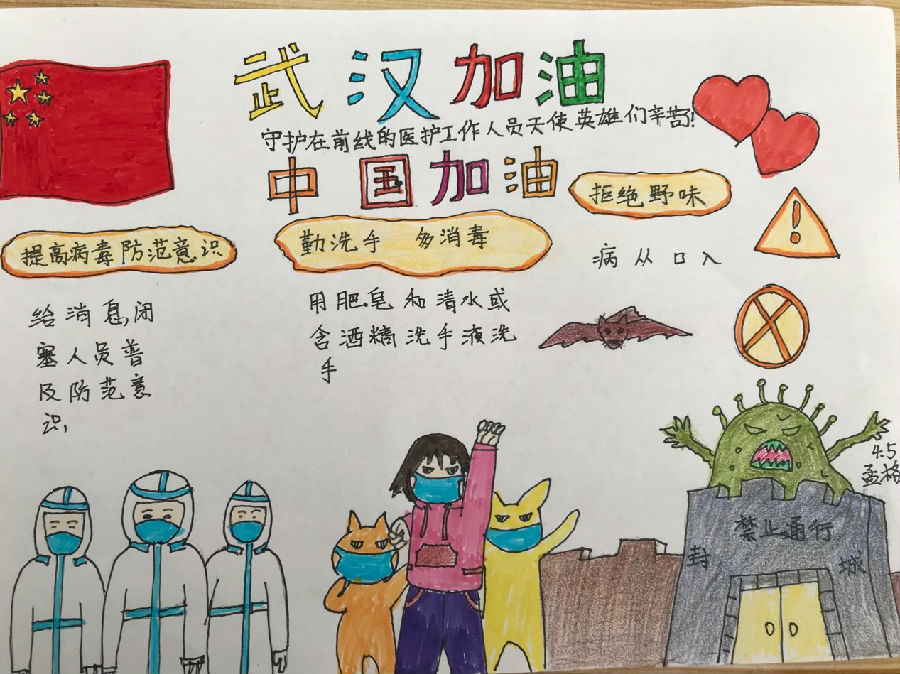 武汉加油
守护在前线的医护工作人员天使英雄们辛苦!
中国加油
拒绝野味
病从口入
提高病毒防范意识
给消息闭
塞人员普
及防范意
识,
勤洗手 多消毒
用肥皂和清水或
含酒精洗手液洗
手
4.5
孟格
禁止通行
封 城